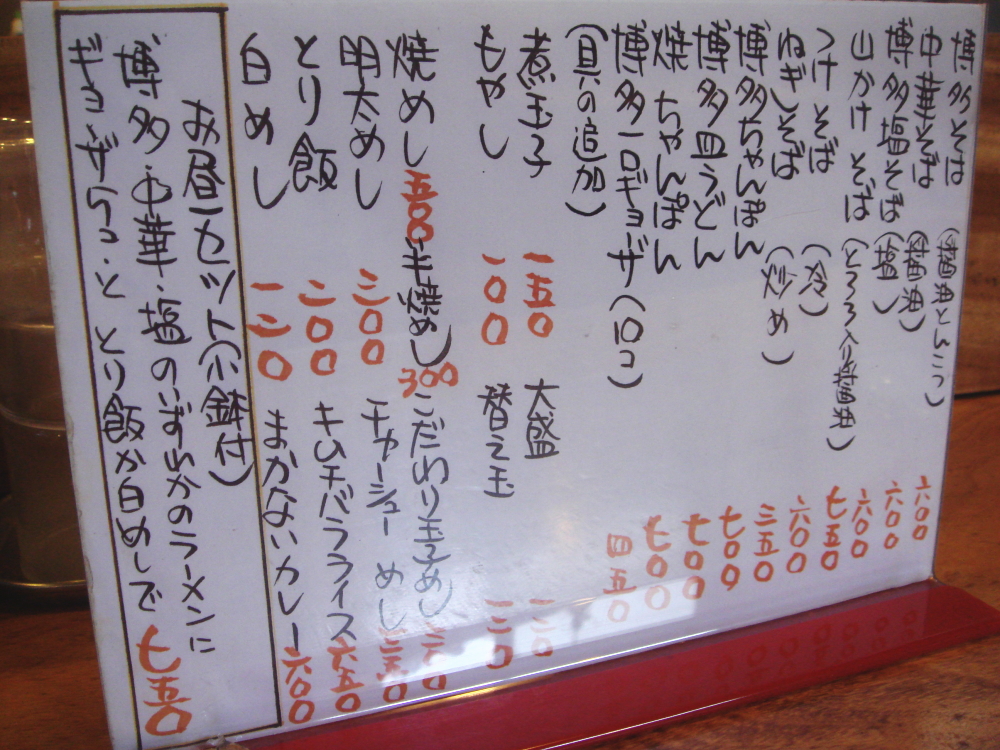 博多そば (醤油とんこつ) 六〇〇
中華そば (醤油) 六〇〇
博多塩そば (塩) 六〇〇
山かけそば (とろろ入り醤油) 七五〇
つけそば (冷) 六〇〇
ねぎそば (炒め) 三五〇
博多ちゃんぽん 七〇〇
博多皿うどん 七〇〇
焼ちゃんぽん 七〇〇
博多一口ギョーザ(10コ) 四五〇
(具の追加)
煮玉子 一五〇 大盛 一二〇
もやし 一〇〇 替え玉 一二〇
焼めし 五〇〇 半焼めし 300 こだわり玉子めし
明太めし 三〇〇 チャーシューめし
とり飯 二〇〇 キムチバラライス 六五〇
白めし 一二〇 まかないカレー 六〇〇
お昼一カセット(小鉢付)
博多・中華・塩のいずれかのラーメンに
ギョーザ5コ・と とり飯か白めしで 七五〇